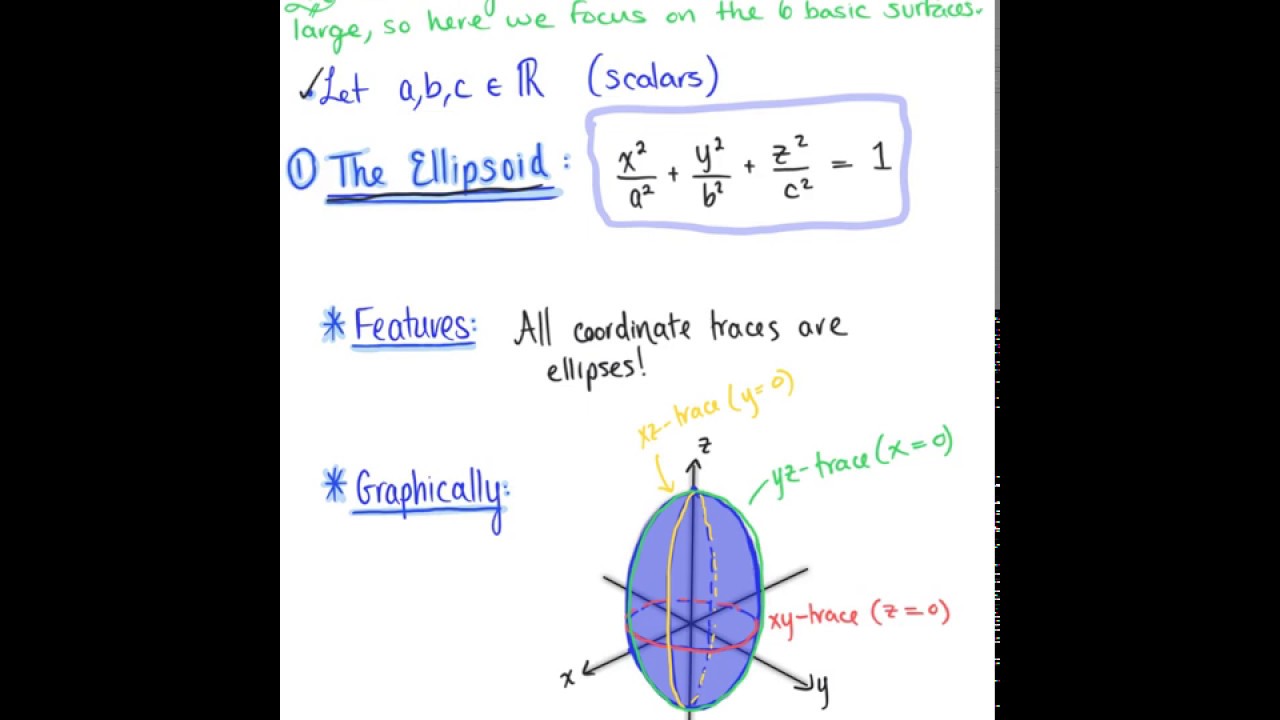 large, so here we focus on the 6 basic surfaces.
✓Let a,b,c ∈ ℝ (scalars)
① The Ellipsoid: x²/a² + y²/b² + z²/c² = 1
* Features: All coordinate traces are
ellipses!
xz-trace (y=0)
z
yz-trace (x=0)
* Graphically:
xy-trace (z=0)
x
y